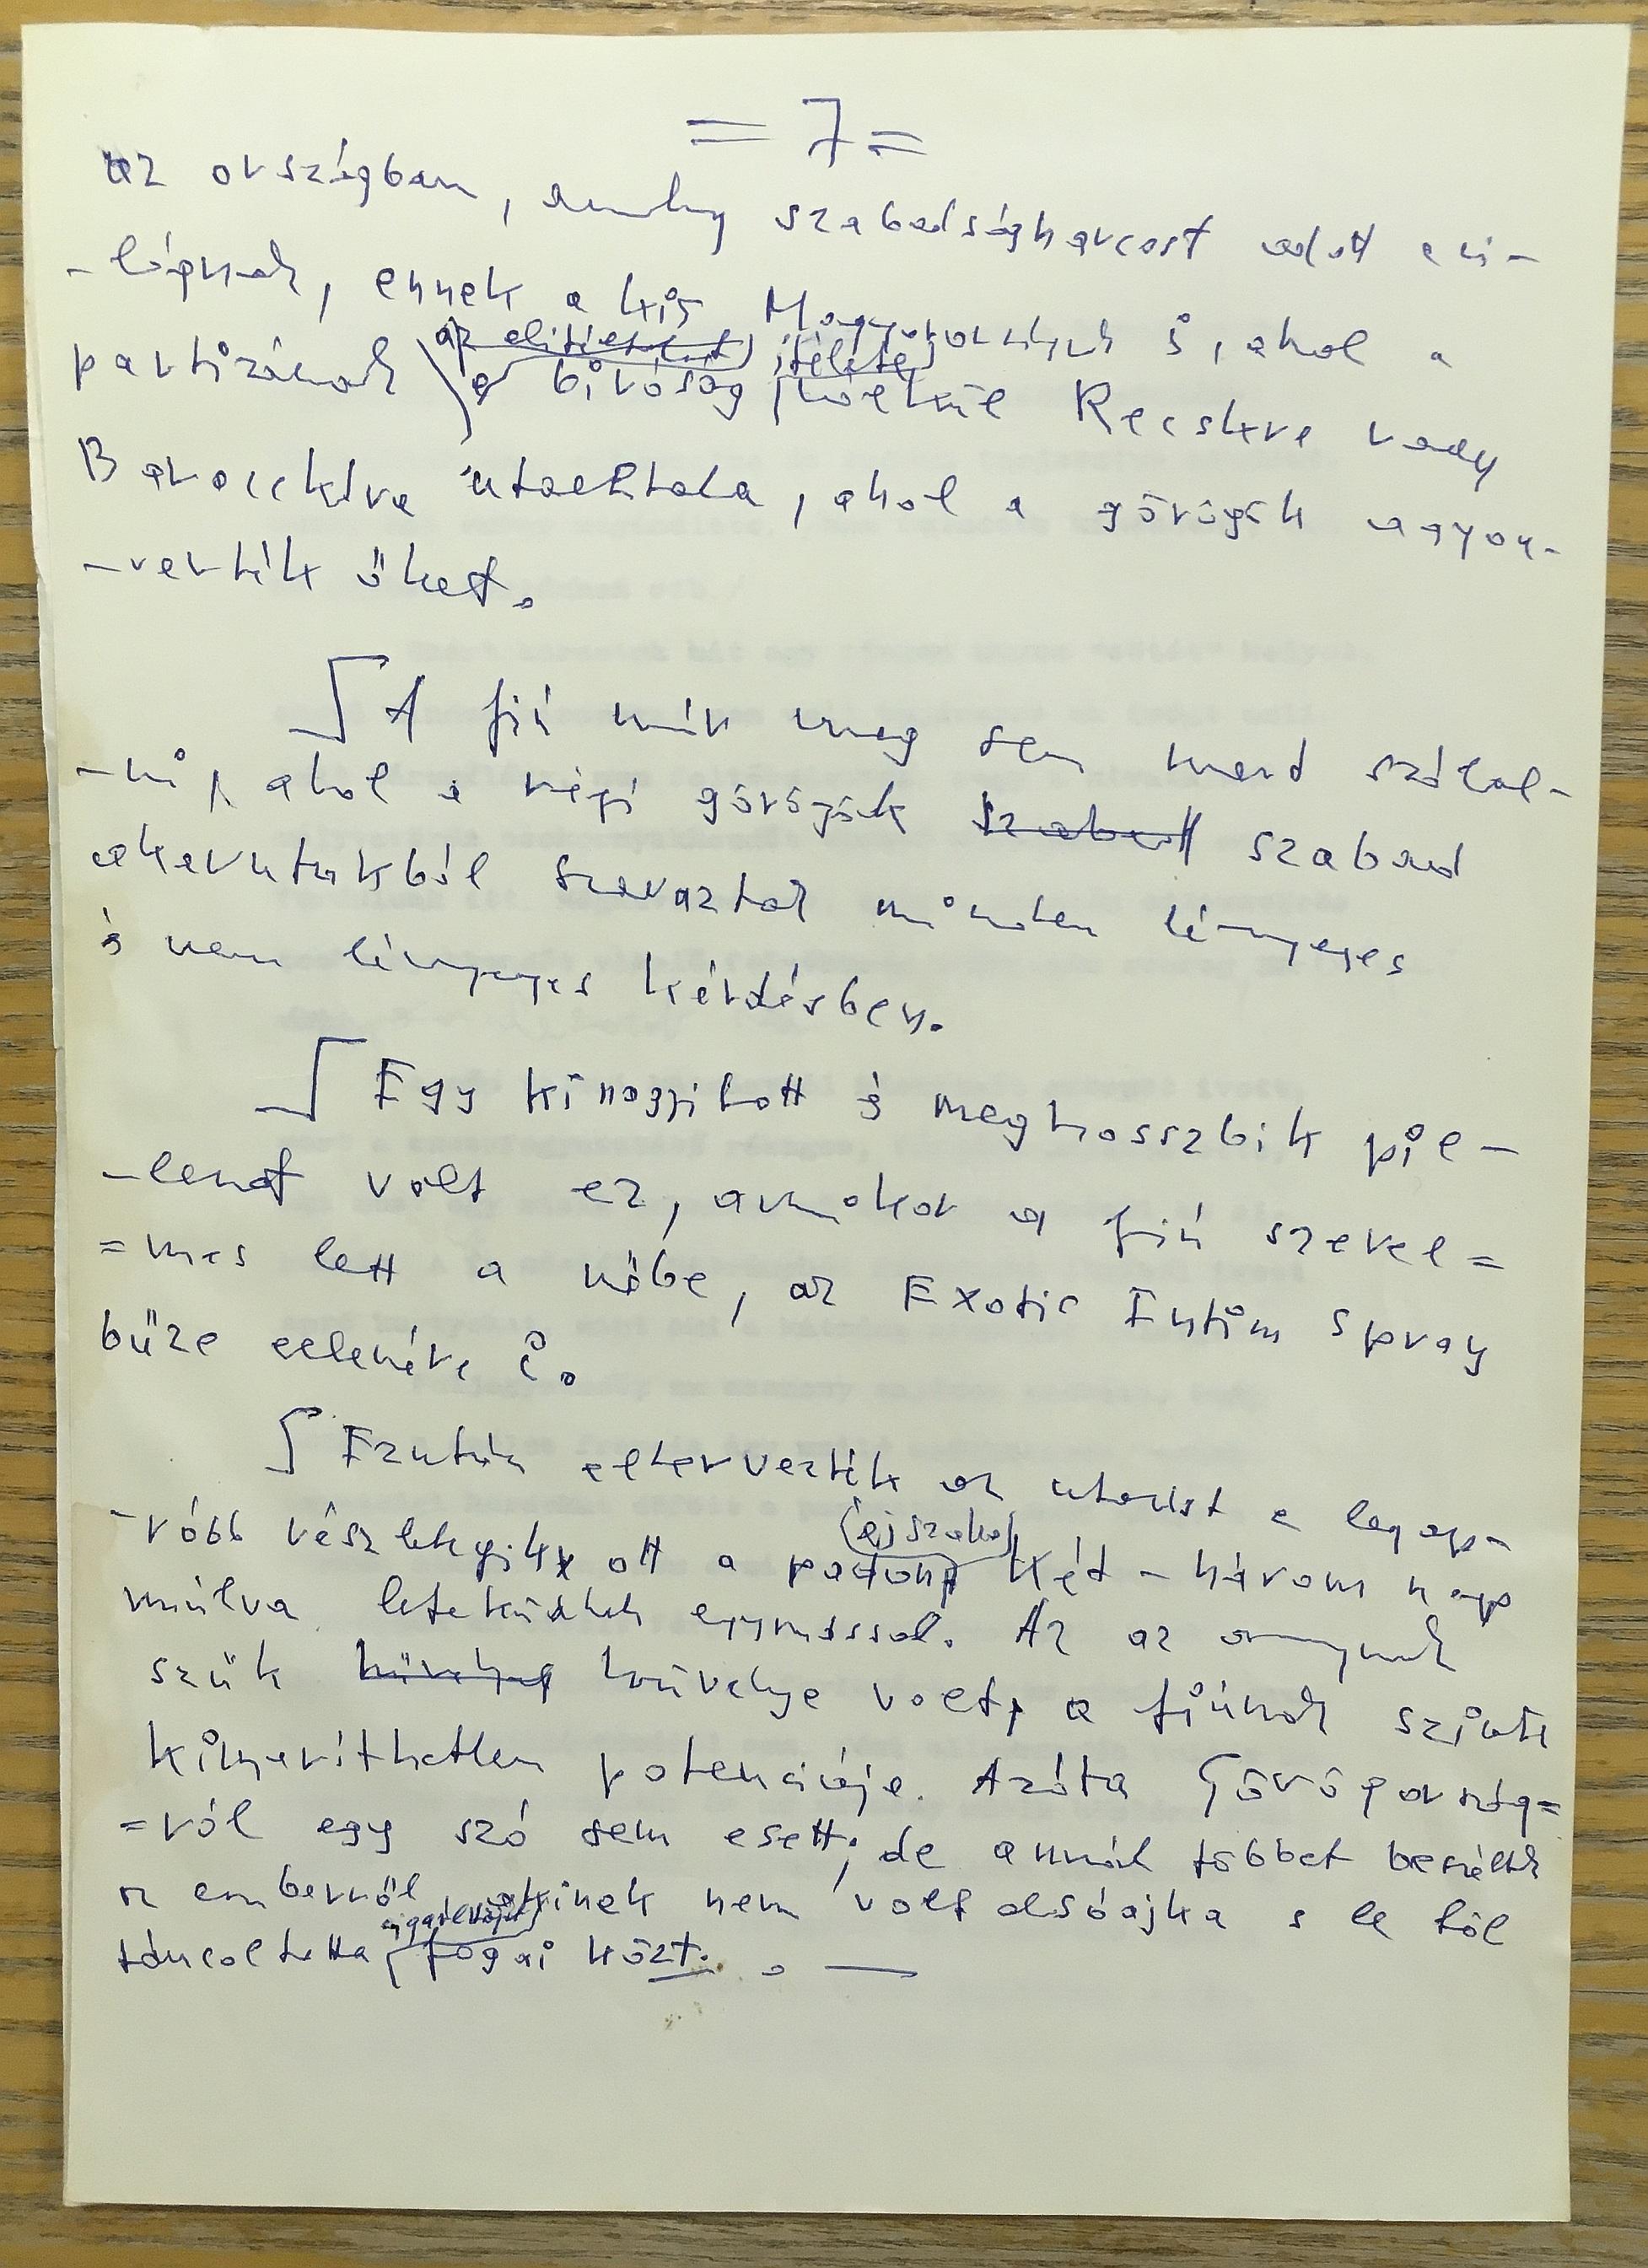 = 7 =
az országban, amely szabadságharcost adott a vi-
-lágnak, ennek a kis Magyarországnak is, ahol a
az elitieket ítélete
partizánok a bíróság nélkül Recskre vagy
Baracskára utaltala, ahol a görögök agyon-
-verték őket.
A fiú már meg sem mert szólal-
-ni, ahol a régi görögök szabad szabad
akaratukból szavaztak minden lényeges
és nem lényeges kérdésben.
Egy kinagyitott és meghosszbik pil-
-lanat volt ez, amikor a fiú szerel=
=mes lett a nőbe, az Exotic Intim Spray
bűze ellenére is.
Ezután eltervezték az utazást a legap-
(éjszaka)
-róbb részletekig, ott a padon, Két-három nap
múlva lefeküdtek egymással. Az az anyának
szűk hüvelye hüvelye volt, a fiúnak szinte
kimeríthetlen potenciája. Azóta Görögország=
=ról egy szó sem esett, de annál többet beszéltek
az emberről akinek nem volt alsóajka s le föl
cigarettáját
táncoltatta fogai közt. . —